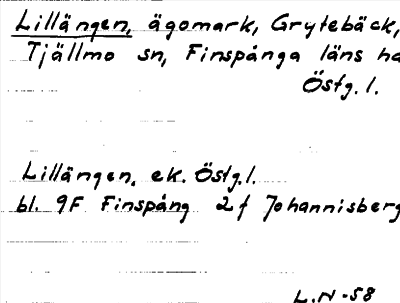 Lillängen, ägomark, Grytebäck,
Tjällmo sn, Finspånga läns ha
Östg. l.
Lillängen, ek. Östg. l.
bl. 9F Finspång 2f Johannisberg
L.N -58